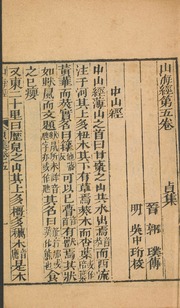 山海經第五卷 貞集
晉 郭璞傳
明 吳中珩校
中山經
中山經薄山之首曰甘棗之山共水出焉而西流
注于河其上多杻木其下有草焉葵本而杏葉
黃華而莢實名曰籜可以已瞢有獸焉其狀
鼠而文題其名曰食
之已癭
又東二十里曰歷兒之山其上多橿多櫔木是木